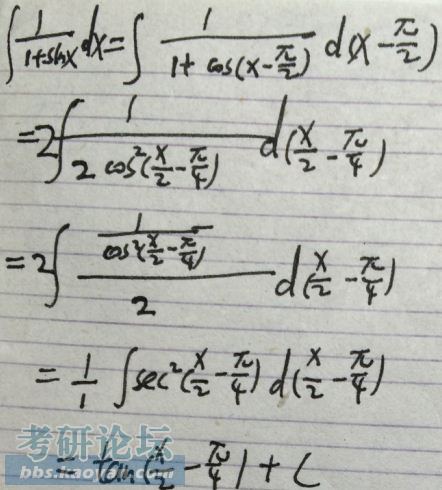 ∫ 1/(1+sinx) dx = ∫ 1/(1+cos(x-π/2)) d(x-π/2)
=2∫ 1/(2cos²(x/2-π/4)) d(x/2-π/4)
=2∫ (1/cos²(x/2-π/4))/2 d(x/2-π/4)
= 1/1 ∫sec²(x/2-π/4) d(x/2-π/4)
= tan(x/2-π/4)+C
考研论坛
bbs.kaoyan.com